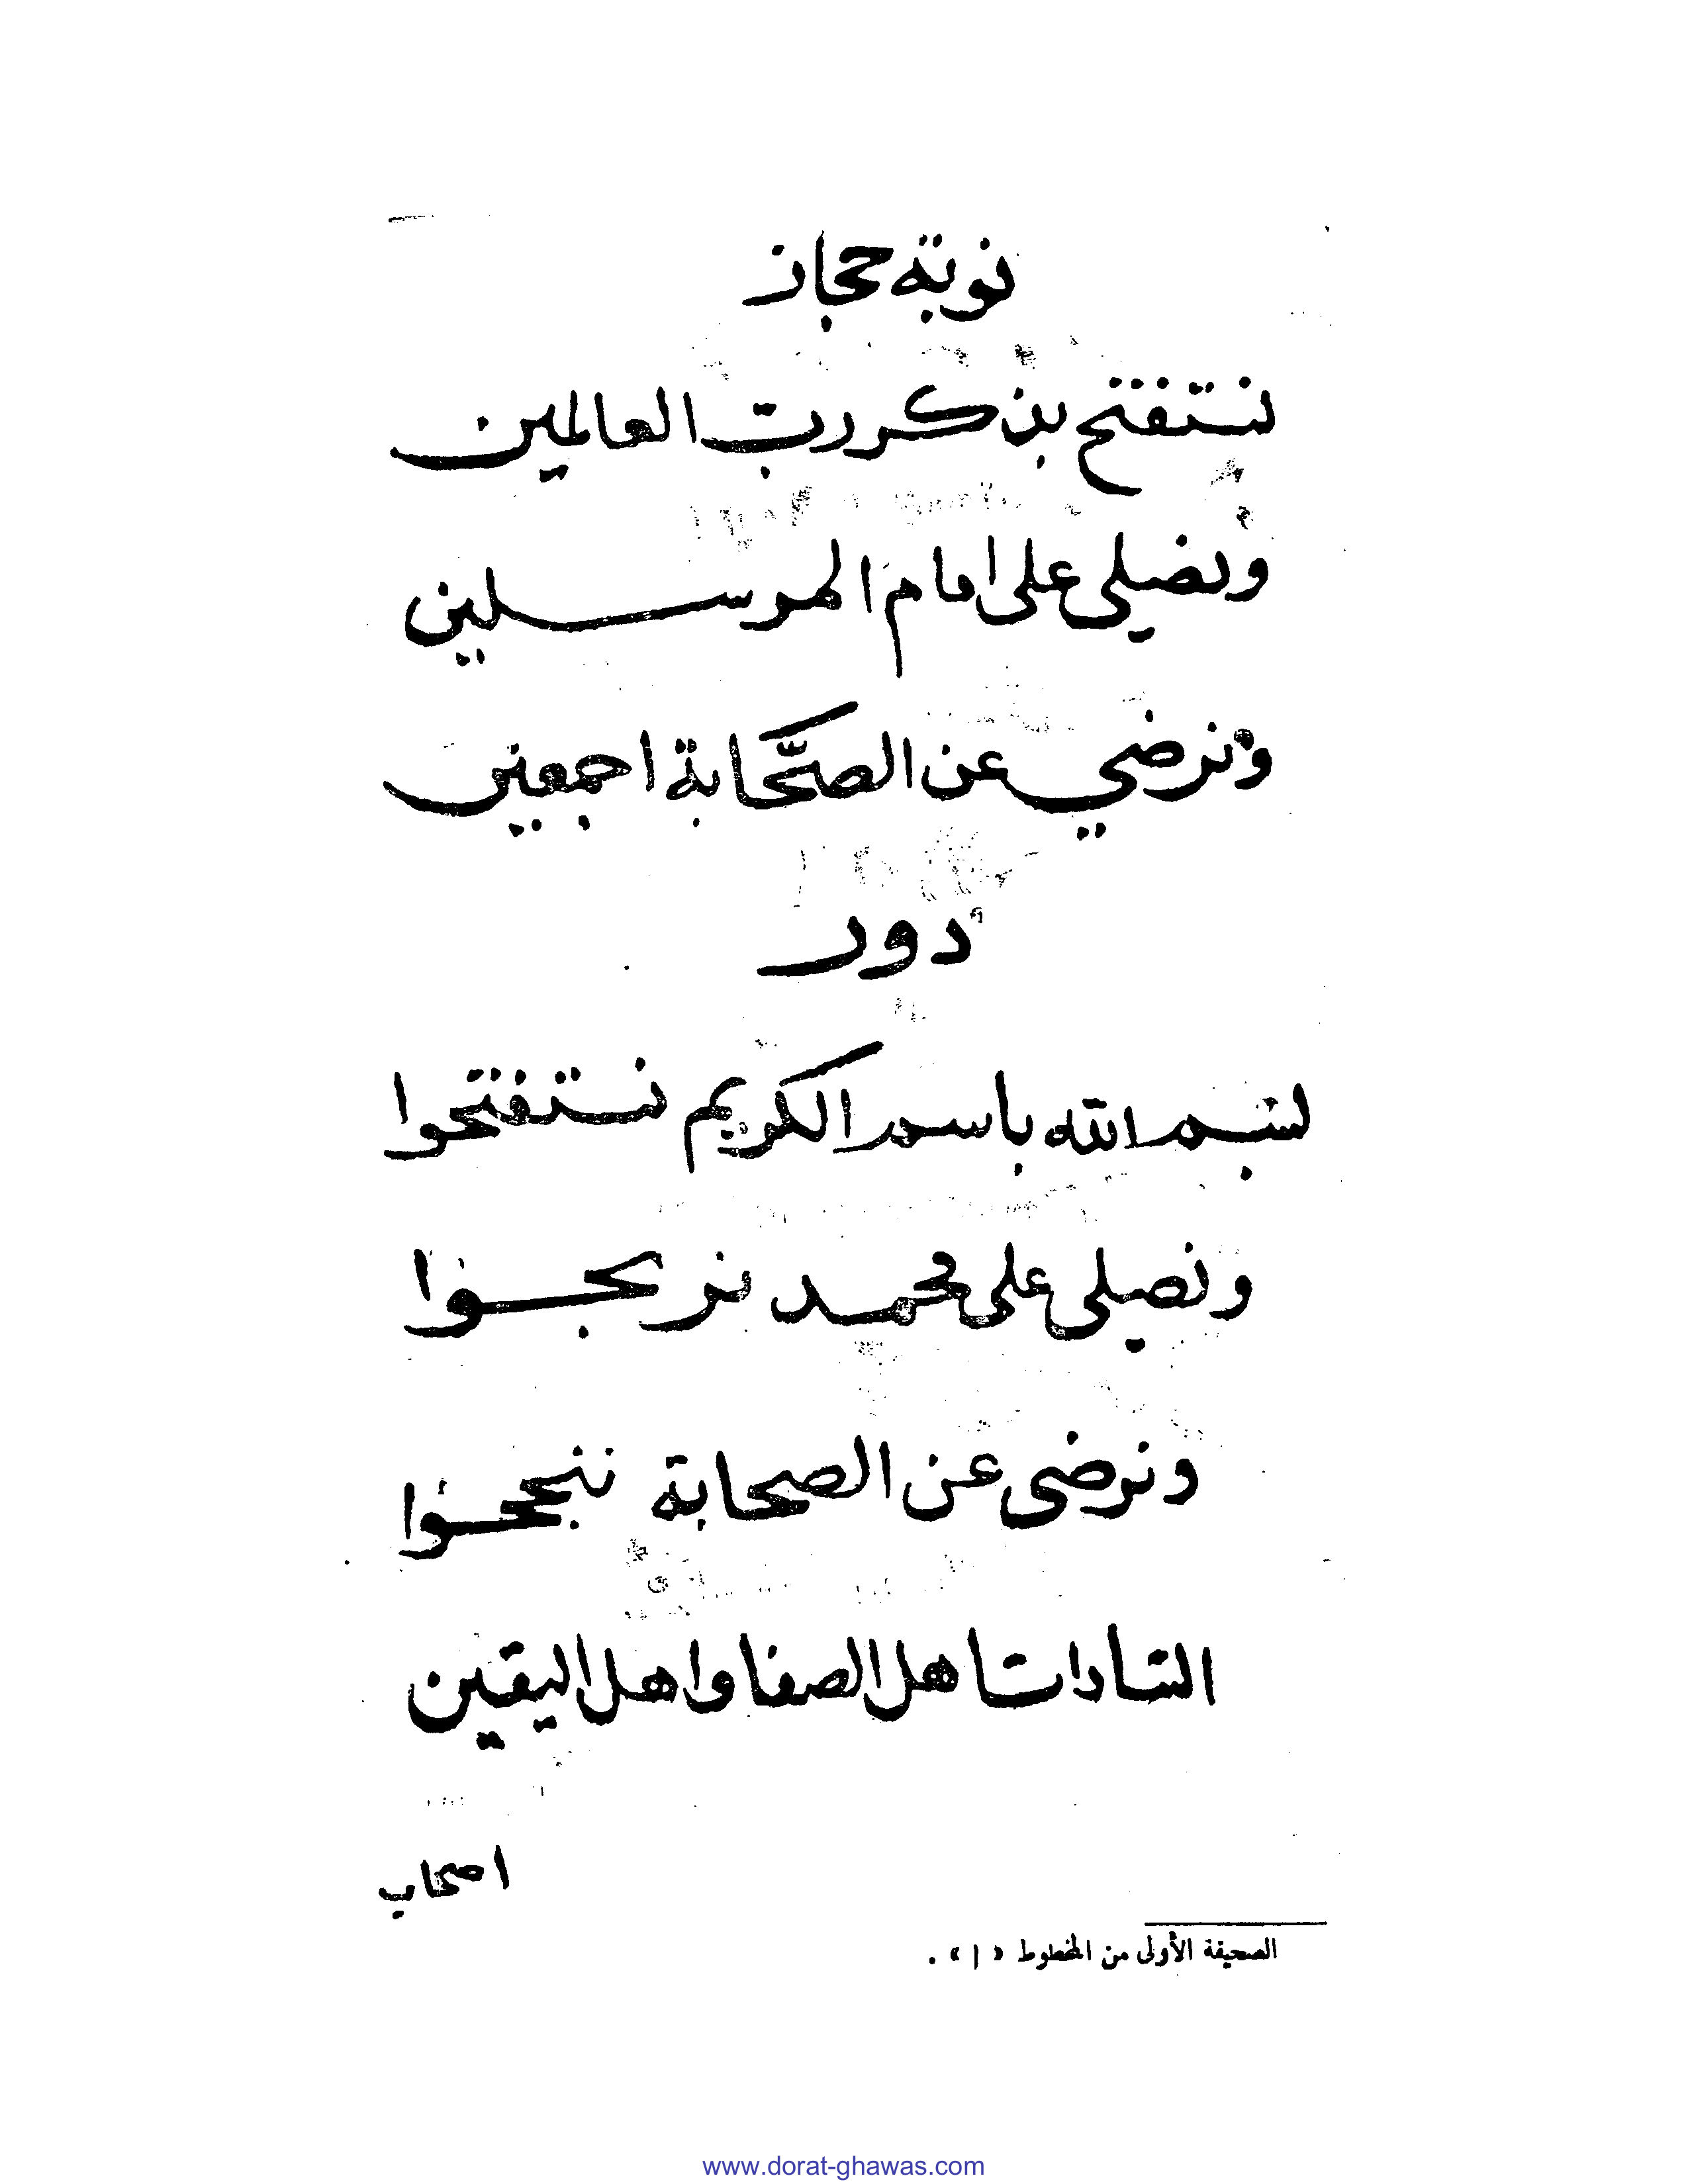 نوبة حجاز
نستفتح بذكر ربّ العالمين
ونصلي على امام المرسلين
ونرضي عن الصّحابة اجمعين
دور
بسم الله باسم الكريم نستفتحوا
ونصلي على محمد نربحوا
ونرضى عن الصحابة ننجحوا
السادات اهل الصفا واهل اليقين
اصحاب
الصحيفة الأولى من المخطوط « ا » .
www.dorat-ghawas.com